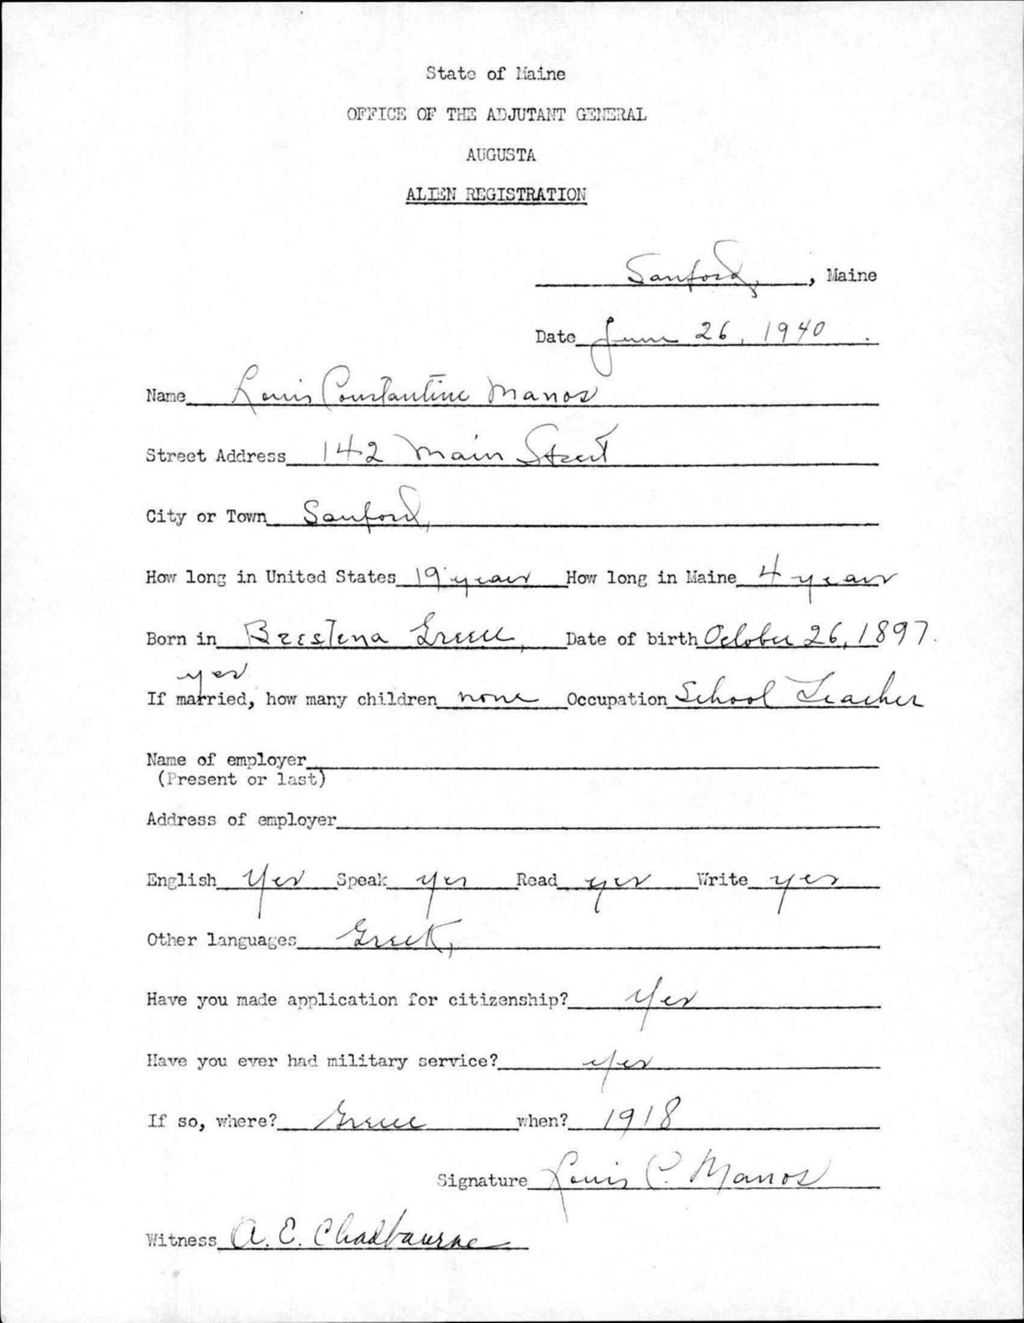 State of Maine
OFFICE OF THE ADJUTANT GENERAL
AUGUSTA
ALIEN REGISTRATION
Sanford, , Maine
Date June 26, 1940 .
Name Louis Constantine Manos
Street Address 142 Main Street
City or Town Sanford,
How long in United States 19 years How long in Maine 4 years
Born in Brestena Greece, Date of birth October 26, 1897.
yes
If married, how many children none Occupation School Teacher
Name of employer
(Present or last)
Address of employer
English Yes Speak yes Read yes Write yes
Other languages Greek,
Have you made application for citizenship? Yes
Have you ever had military service? yes
If so, where? Greece when? 1918
Signature Louis C. Manos
Witness A. E. Chadbourne